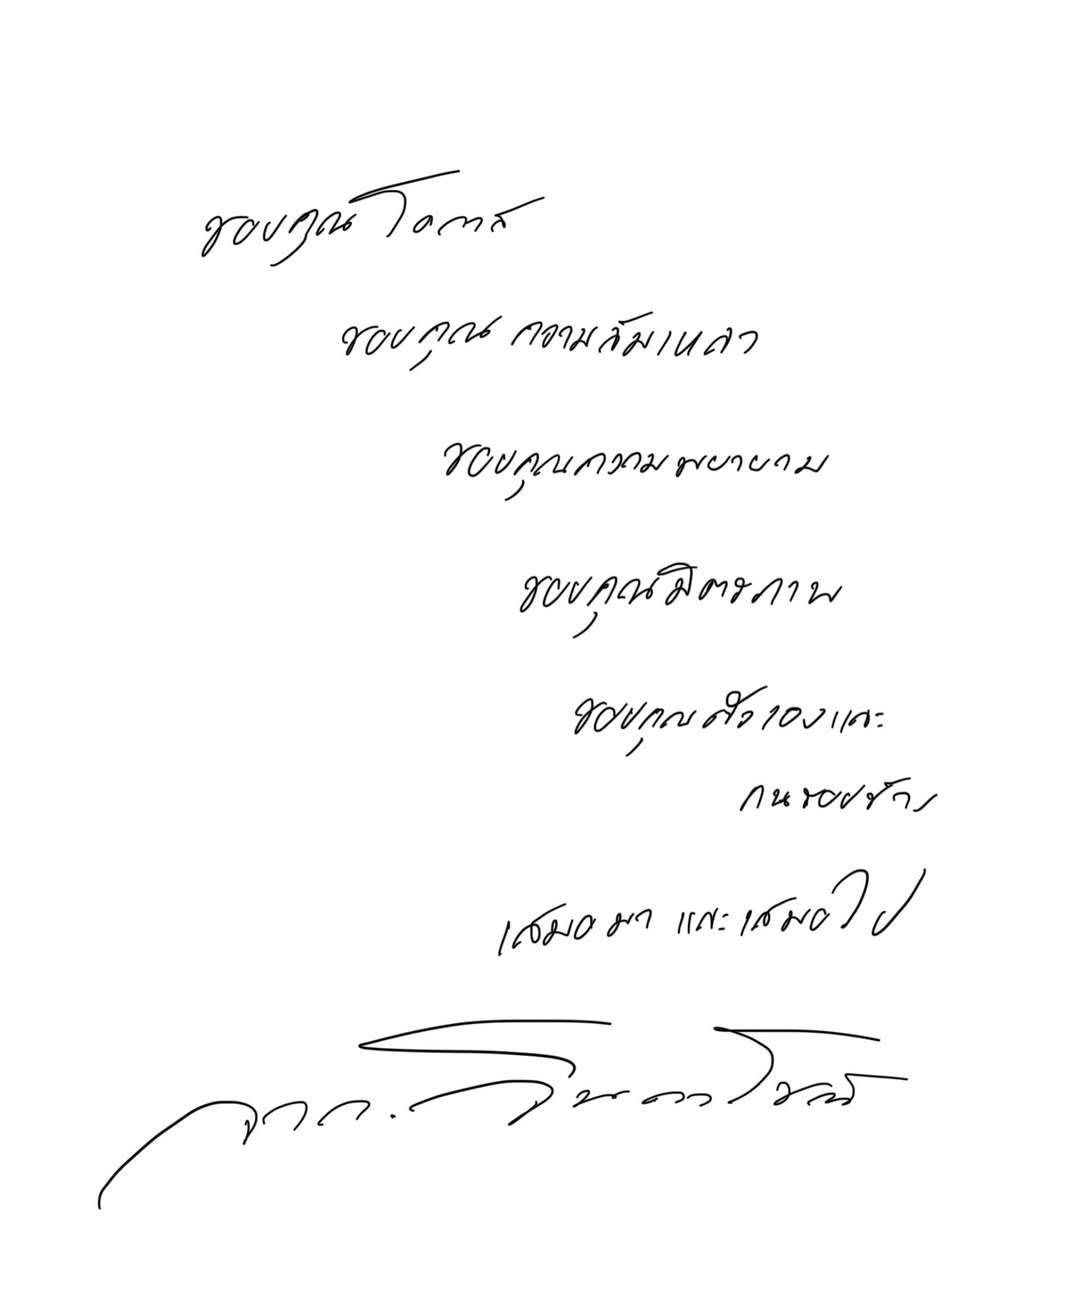 ขอบคุณโอกาส
ขอบคุณ ความล้มเหลว
ขอบคุณความพยายาม
ขอบคุณมิตรภาพ
ขอบคุณตัวเองและ
คนรอบข้าง
เสมอมา และเสมอไป